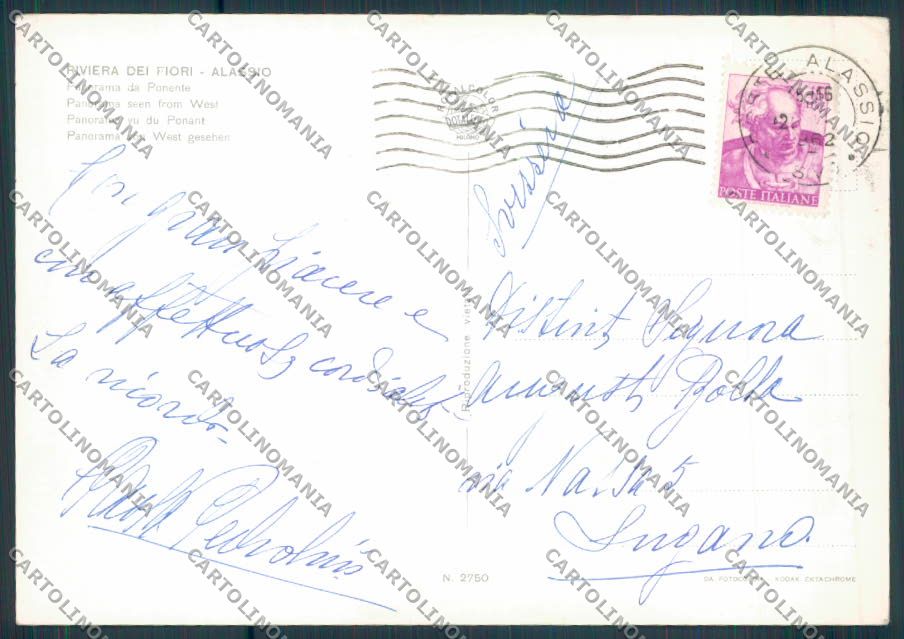 RIVIERA DEI FIORI - ALASSIO
Panorama da Ponente
Panorama seen from West
Panorama vu du Ponant
Panorama von West gesehen
ALASSIO
POSTE ITALIANE
Svizzera
Con gran piacere e
con affettuosa cordialità
La ricordo
Distinta Signora
Augusta Bolla
via Nassa 5
Lugano
Riproduzione vietata
N. 2750
DA FOTOCOLOR KODAK EKTACHROME
CARTOLINOMANIA